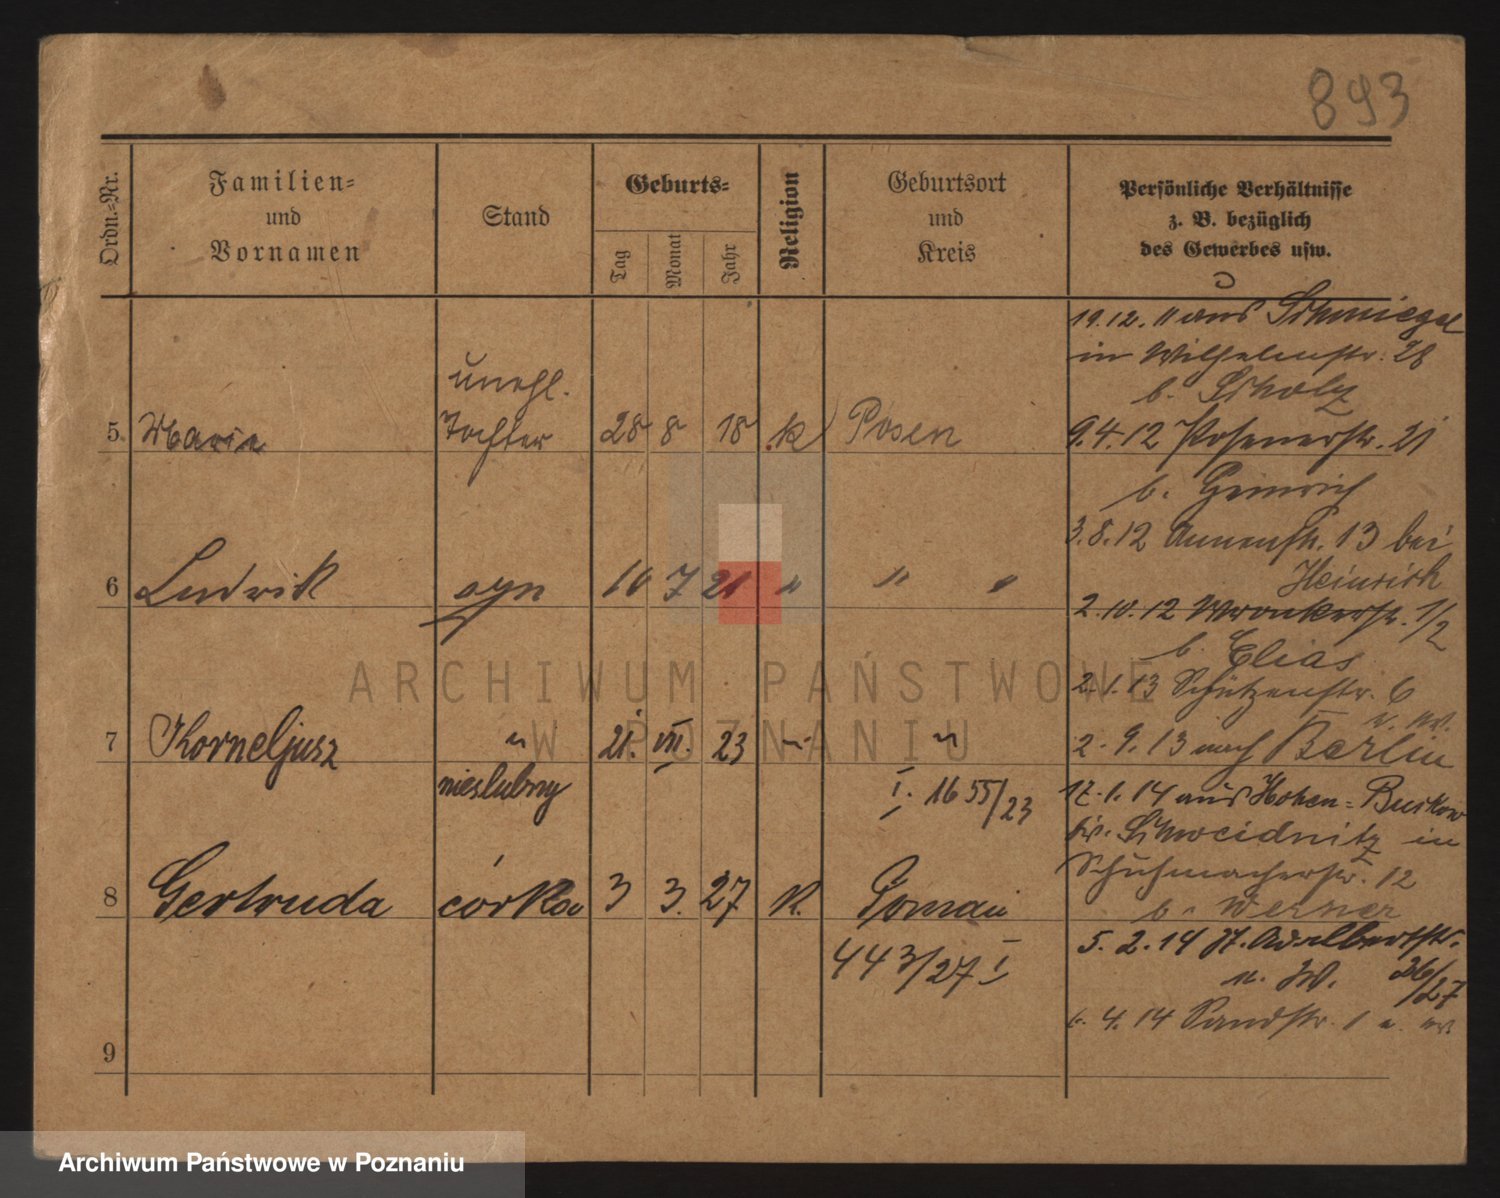 893
Ordn.-Nr.
Familien-
und
Vornamen
Stand
Geburts-
Tag
Monat
Jahr
Religion
Geburtsort
und
Kreis
Persönliche Verhältnisse
z. B. bezüglich
des Gewerbes usw.
19.12.11 aus Schmiegel
in Wilhelmstr. 28
b. Scholz
unehl.
5. Maria Tochter 28 8 18 k Posen
9.4.12 Posenerstr. 21
b. Heinrich
3.8.12 Annenstr. 13 bei
Heinrich
6 Ludwik syn 10 7 21 " " "
2.10.12 Wronkerstr. 1/2
b. Elias
2.1.13 Schützenstr. 6
7 Korneljusz " 21. VII. 23 " "
2.9.13 nach Berlin
nieslubny
I. 1655/23
17.1.14 aus Hohen-
Kr. Schweidnitz in
Schuhmacherstr. 12
b. Werner
8 Gertruda córka 3 3. 27 K.
443/27 I
5.2.14 St. Adalbertstr.
26/27
4.14 Sandstr. 1
9
ARCHIWUM PAŃSTWOWE
W POZNANIU
Archiwum Państwowe w Poznaniu